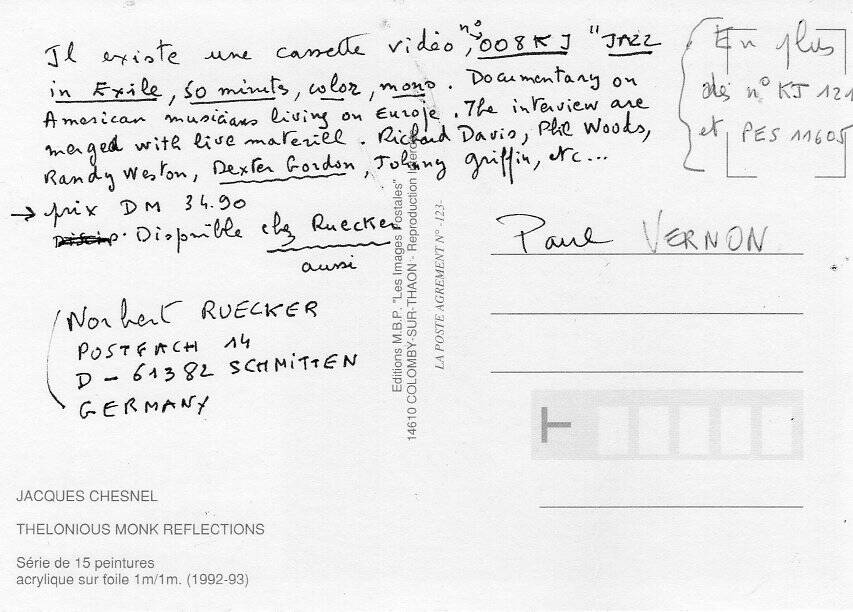 Il existe une cassette vidéo, n° 008 KJ "JAZZ
in Exile, 50 minuts, color, mono. Documentary on
American musicians living on Europe. The interview are
merged with live materiell. Richard Davis, Phil Woods,
Randy Weston, Dexter Gordon, Johnny griffin, etc...
→ prix DM 34.90
Disponible chez Ruecker
aussi
Norbert RUECKER
POSTFACH 14
D - 61382 SCHMITTEN
GERMANY
En plus
des n° KJ 121
et PES 11605
Paul VERNON
Editions M.B.P. "Les Images Postales"
14610 COLOMBY-SUR-THAON - Reproduction
LA POSTE AGREMENT N° -123-
T
JACQUES CHESNEL
THELONIOUS MONK REFLECTIONS
Série de 15 peintures
acrylique sur foile 1m/1m. (1992-93)